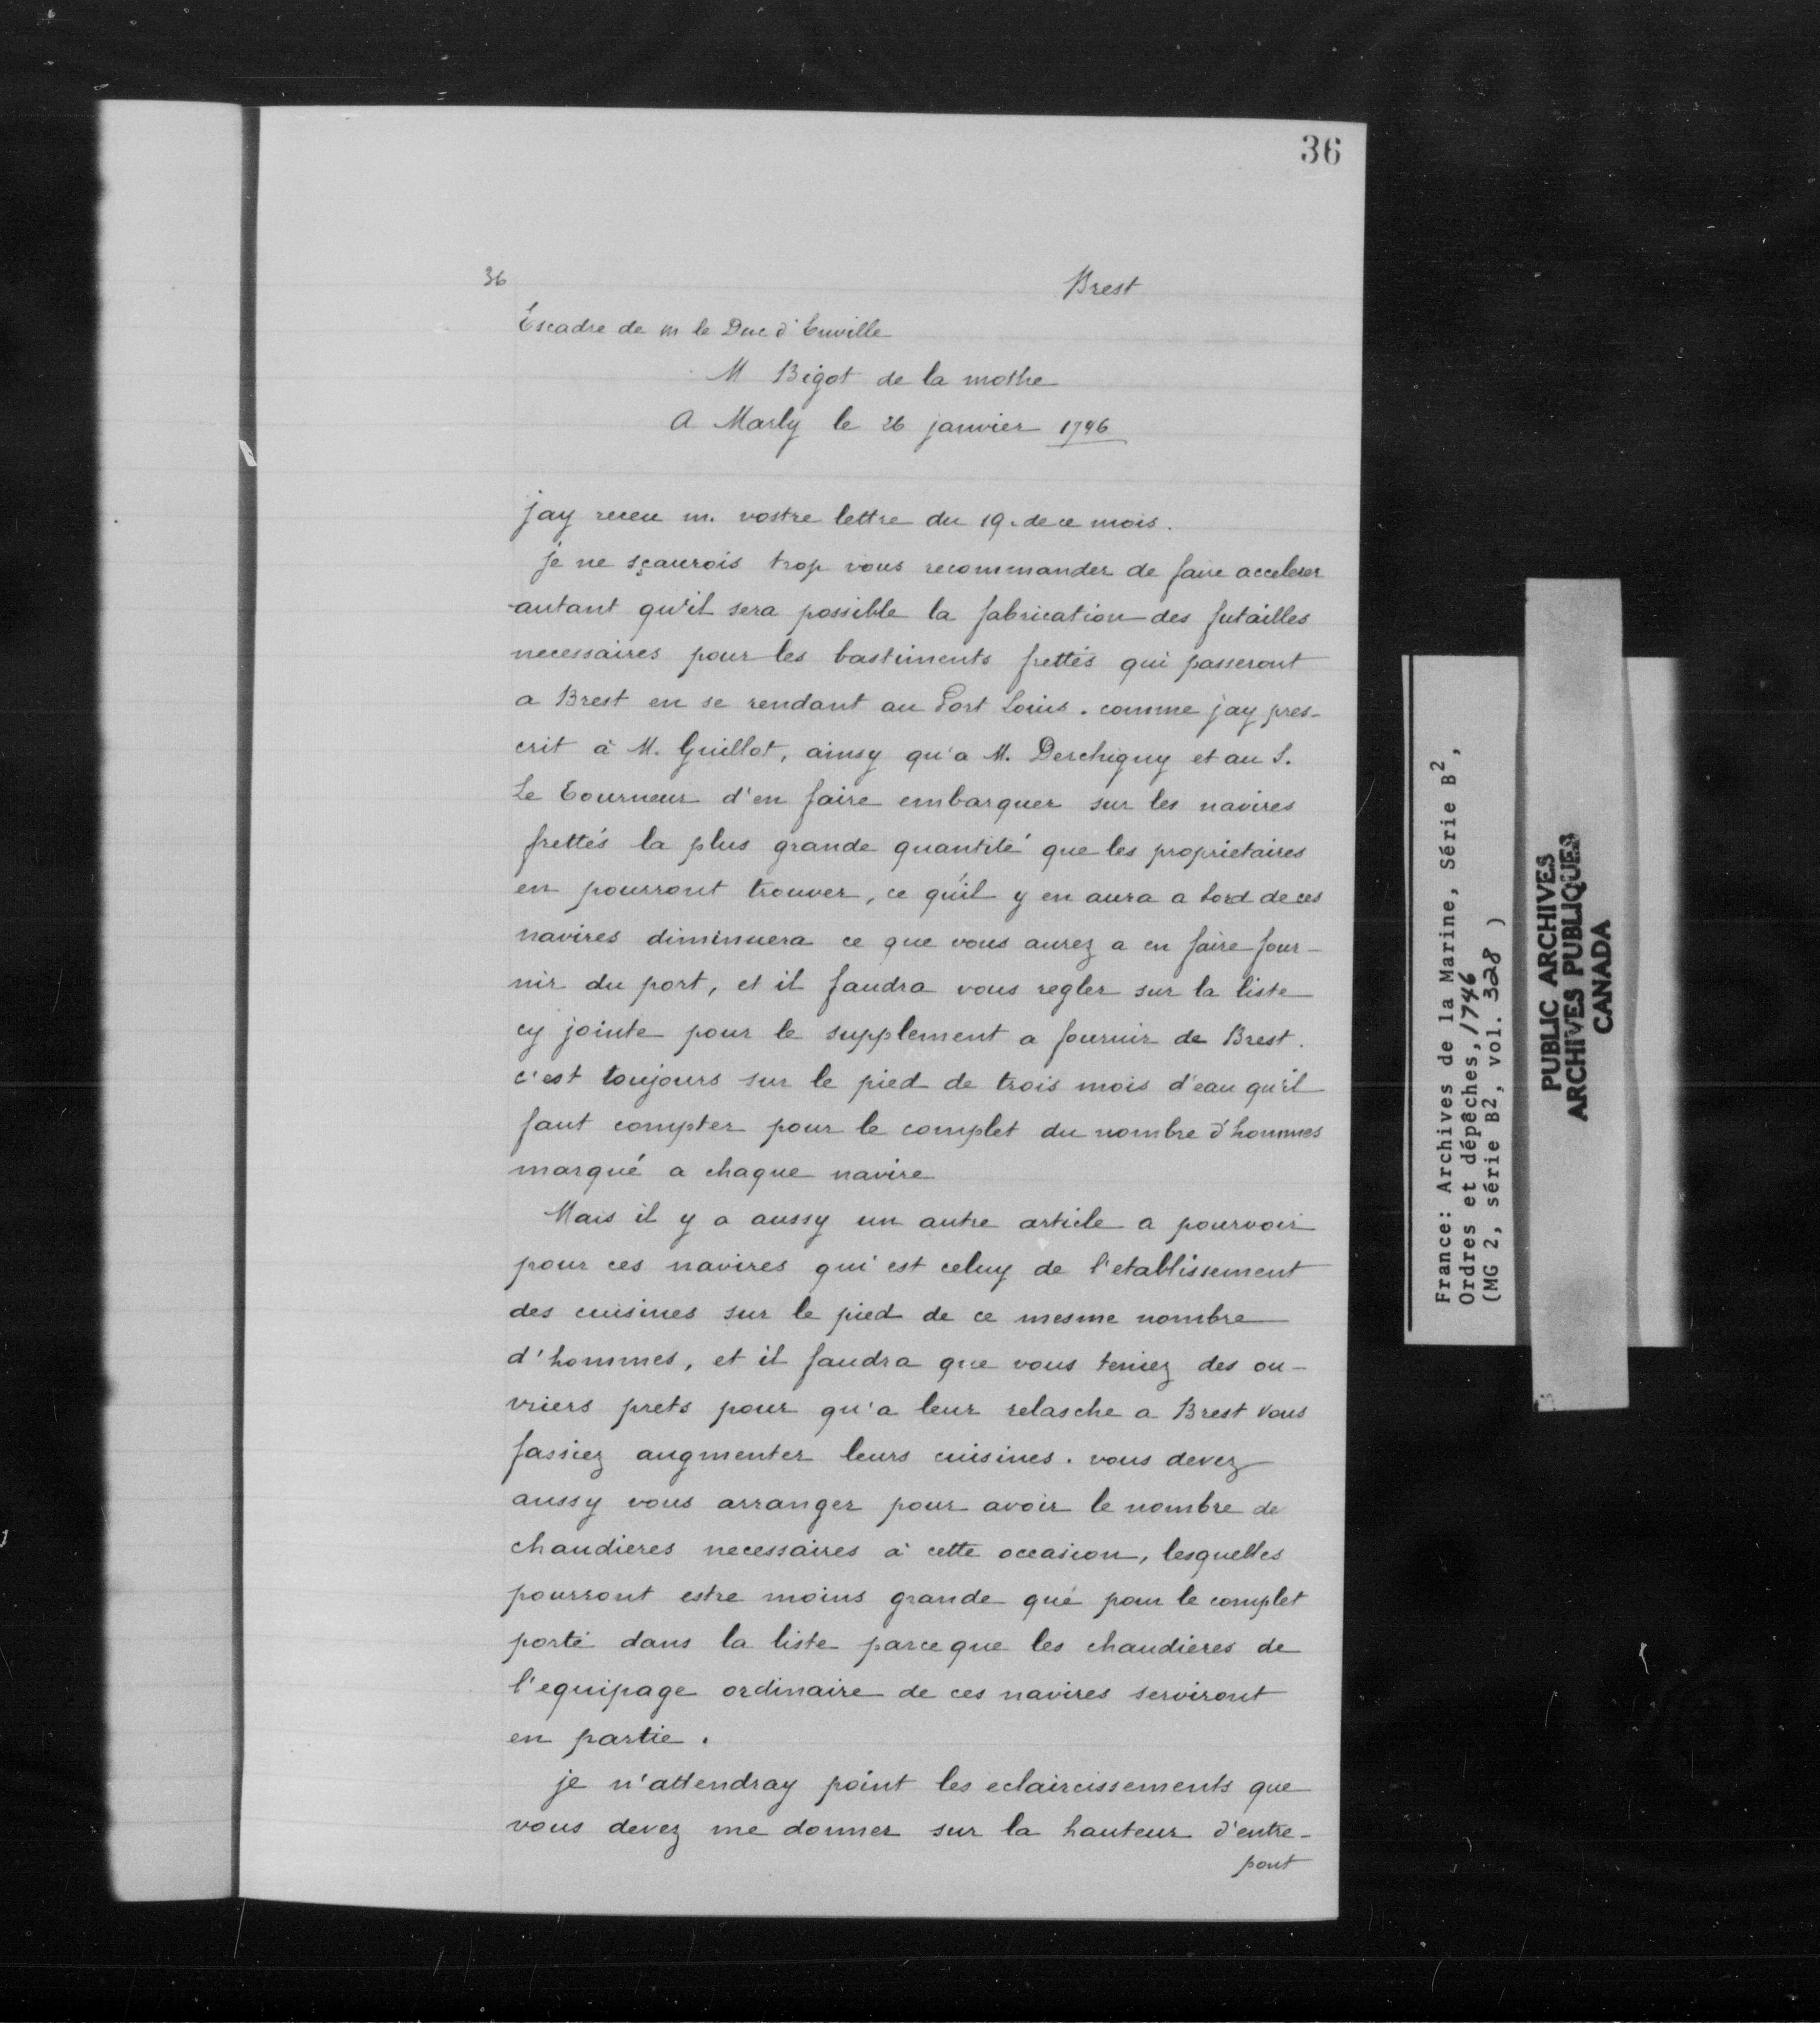 36
36
Brest
Escadre de m le Duc d'Enville
M Bigot de la mothe
A Marly le 26 janvier 1746
jay receu m. vostre lettre du 19. de ce mois.
je ne sçaurois trop vous recommander de faire accelerer
autant qu'il sera possible la fabrication des futailles
necessaires pour les bastiments frettés qui passeront
a Brest en se rendant au Port Louis. comme jay pres-
crit à M. Guillot, ainsy qu'a M. Derchigny et au S.
Le Tourneur d'en faire embarquer sur les navires
frettés la plus grande quantité que les proprietaires
en pourront trouver, ce qu'il y en aura a bord de ces
navires diminuera ce que vous aurez a en faire four-
nir du port, et il faudra vous regler sur la liste
cy jointe pour le supplement a fournir de Brest.
c'est toujours sur le pied de trois mois d'eau qu'il
faut compter pour le complet du nombre d'hommes
marqué a chaque navire
Mais il y a aussy un autre article a pourvoir
pour ces navires qui est celuy de l'etablissement
des cuisines sur le pied de ce mesme nombre
d'hommes, et il faudra que vous teniez des ou-
vriers prets pour qu'a leur relasche a Brest vous
fassiez augmenter leurs cuisines. vous devez
aussy vous arranger pour avoir le nombre de
chaudieres necessaires à cette occasion, lesquelles
pourront estre moins grande que pour le complet
porté dans la liste parce que les chaudieres de
l'equipage ordinaire de ces navires serviront
en partie.
je n'attendray point les eclaircissements que
vous devez me donner sur la hauteur d'entre-
pont
France: Archives de la Marine, Série B2,
Ordres et dépêches, 1746
(MG 2, série B2, vol. 328 )
PUBLIC ARCHIVES
ARCHIVES PUBLIQUES
CANADA